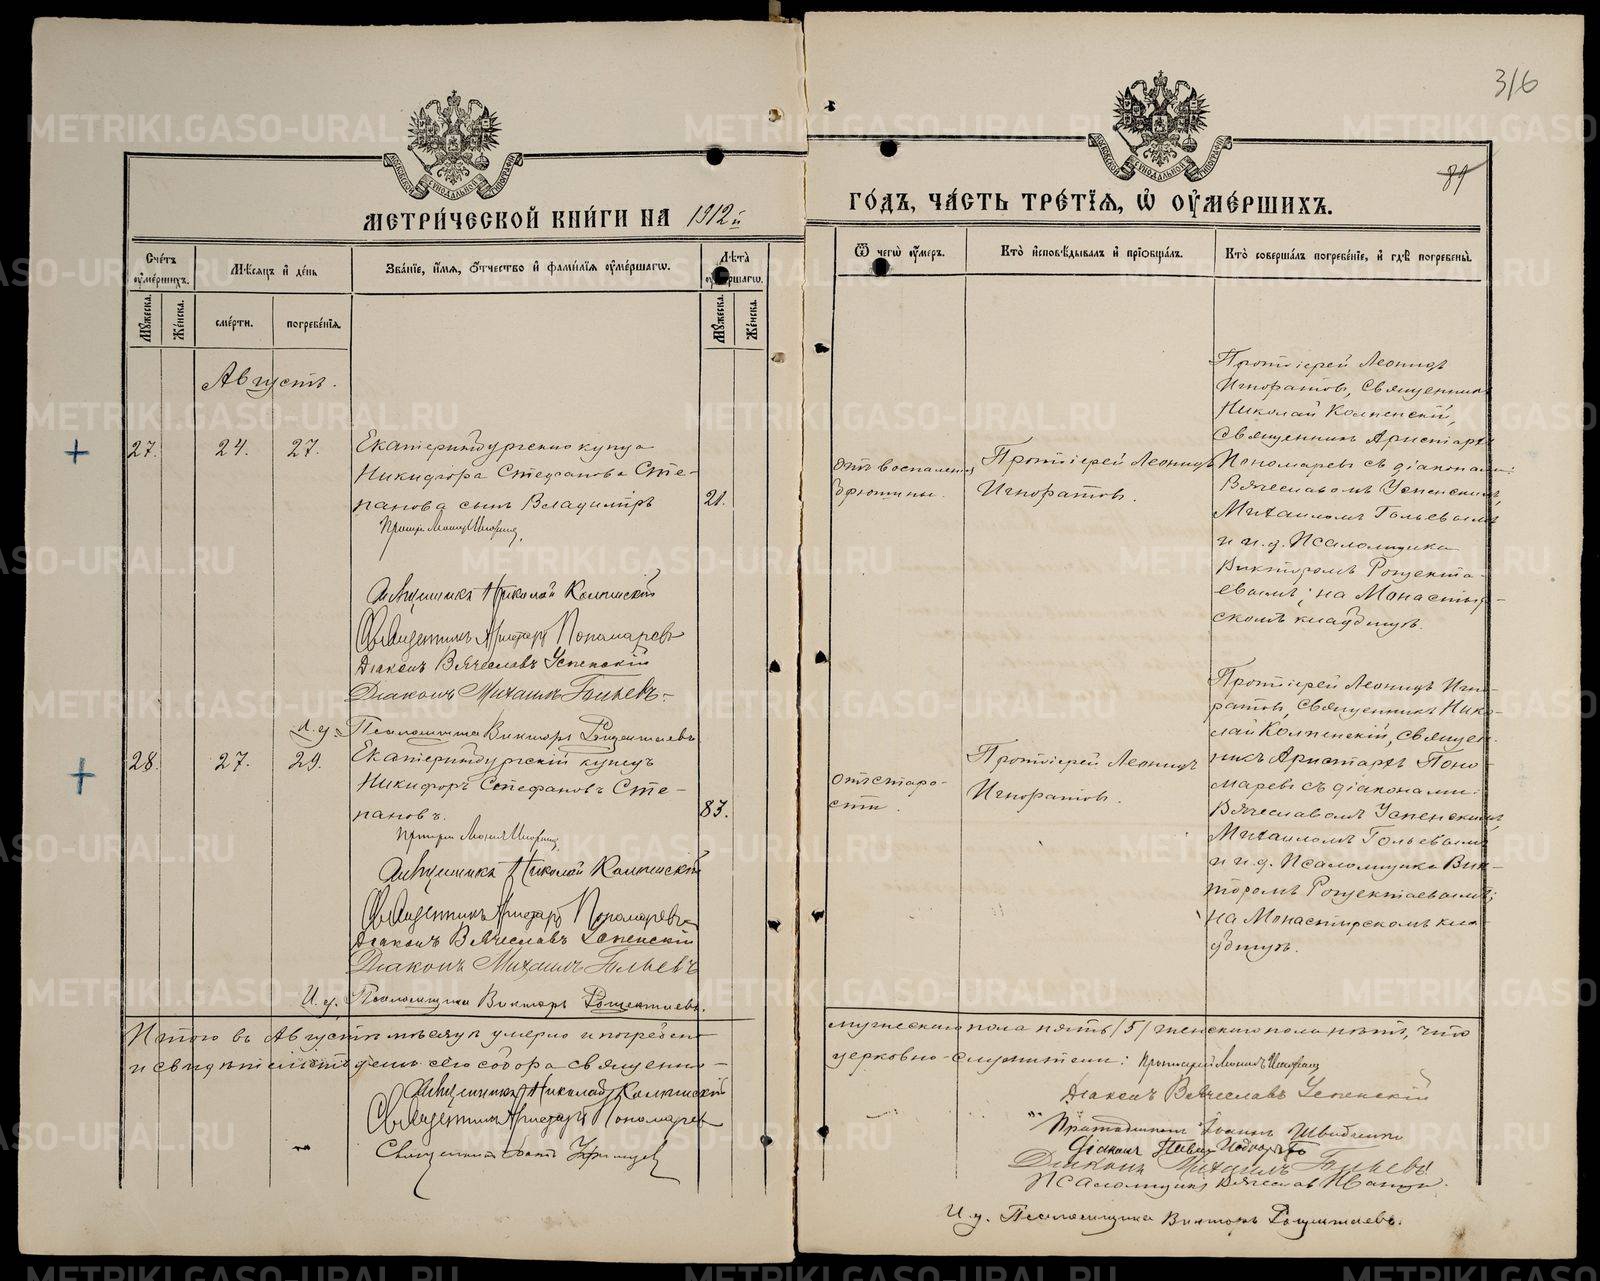 316
84
МЕТРИ́ЧЕСКОЙ КНИ́ГИ НА 1912й
ГО́ДЪ, ЧА́СТЬ ТРЕ́ТІѦ, Ѿ ОУМЕ́РШИХЪ.
Сче́тъ оуме́ршихъ.
Мѣ́сяцъ и де́нь
Зва́ніе, и́мѧ, о́тчество и фами́лія оуме́ршагѡ.
Лѣ́та оуме́ршагѡ.
Мꙋ́жеска.
Же́нска.
сме́рти.
погребе́нїѧ.
Мꙋ́жеска.
Же́нска.
Ѿ чегѡ̀ оу́меръ.
Кто̀ и҆сповѣ́дывалъ и҆ прїѡбща́лъ.
Кто̀ соверша́лъ погребе́нїе, и҆ гдѣ̀ погребены̀.
Августъ.
27.
24.
27.
Екатеринбургскаго купца
Никифора Стефанова Сте-
панова сынъ Владиміръ
21.
Священникъ Николай Колпенскій
Священникъ Аристархъ Пономаревъ
Діаконъ Вячеславъ Успенскій
Діаконъ Михаилъ Гольевъ
И. д. Псаломщика Викторъ
отъ воспаленія
брюшины.
Протоіерей Леонидъ
Игноратов.
Протоіерей Леонидъ
Игноратовъ, Священникъ
Николай Колпенскій,
Священникъ Аристархъ
Пономаревъ съ діаконами:
Вячеславомъ Успенскимъ,
Михаиломъ Гольевымъ
и и. д. Псаломщика
Викторомъ
евымъ; на Монастыр-
скомъ кладбищѣ.
28.
27.
29.
Екатеринбургскій купецъ
Никифоръ Стефановъ Сте-
пановъ.
83.
Священникъ Николай Колпенскій
Священникъ Аристархъ Пономаревъ
Діаконъ Вячеславъ Успенскій
Діаконъ Михаилъ Гольевъ
И. д. Псаломщика Викторъ
отъ старо-
сти.
Протоіерей Леонидъ
Игноратов.
Протоіерей Леонидъ Игно-
ратовъ, Священникъ Нико-
лай Колпенскій, Священ-
никъ Аристархъ Поно-
маревъ съ діаконами:
Вячеславомъ Успенскимъ,
Михаиломъ Гольевымъ
и и. д. Псаломщика Вик-
торомъ
на Монастырскомъ кла-
дбищѣ.
Итого въ Августѣ мѣсяцѣ умерло и погребено
мужескаго пола пять /5/ женскаго пола нѣтъ, что
и свидѣтельствуемъ сего собора священно-
церковно-служители: Протоіерей Леонидъ
Священникъ Николай Колпенскій
Священникъ Аристархъ Пономаревъ
Священникъ
Діаконъ Вячеславъ Успенскій
Протодіаконъ Іоаннъ
Діаконъ Павелъ
Діаконъ Михаилъ Гольевъ
Псаломщикъ Вячеславъ
И. д. Псаломщика Викторъ
METRIKI.GASO-URAL.RU